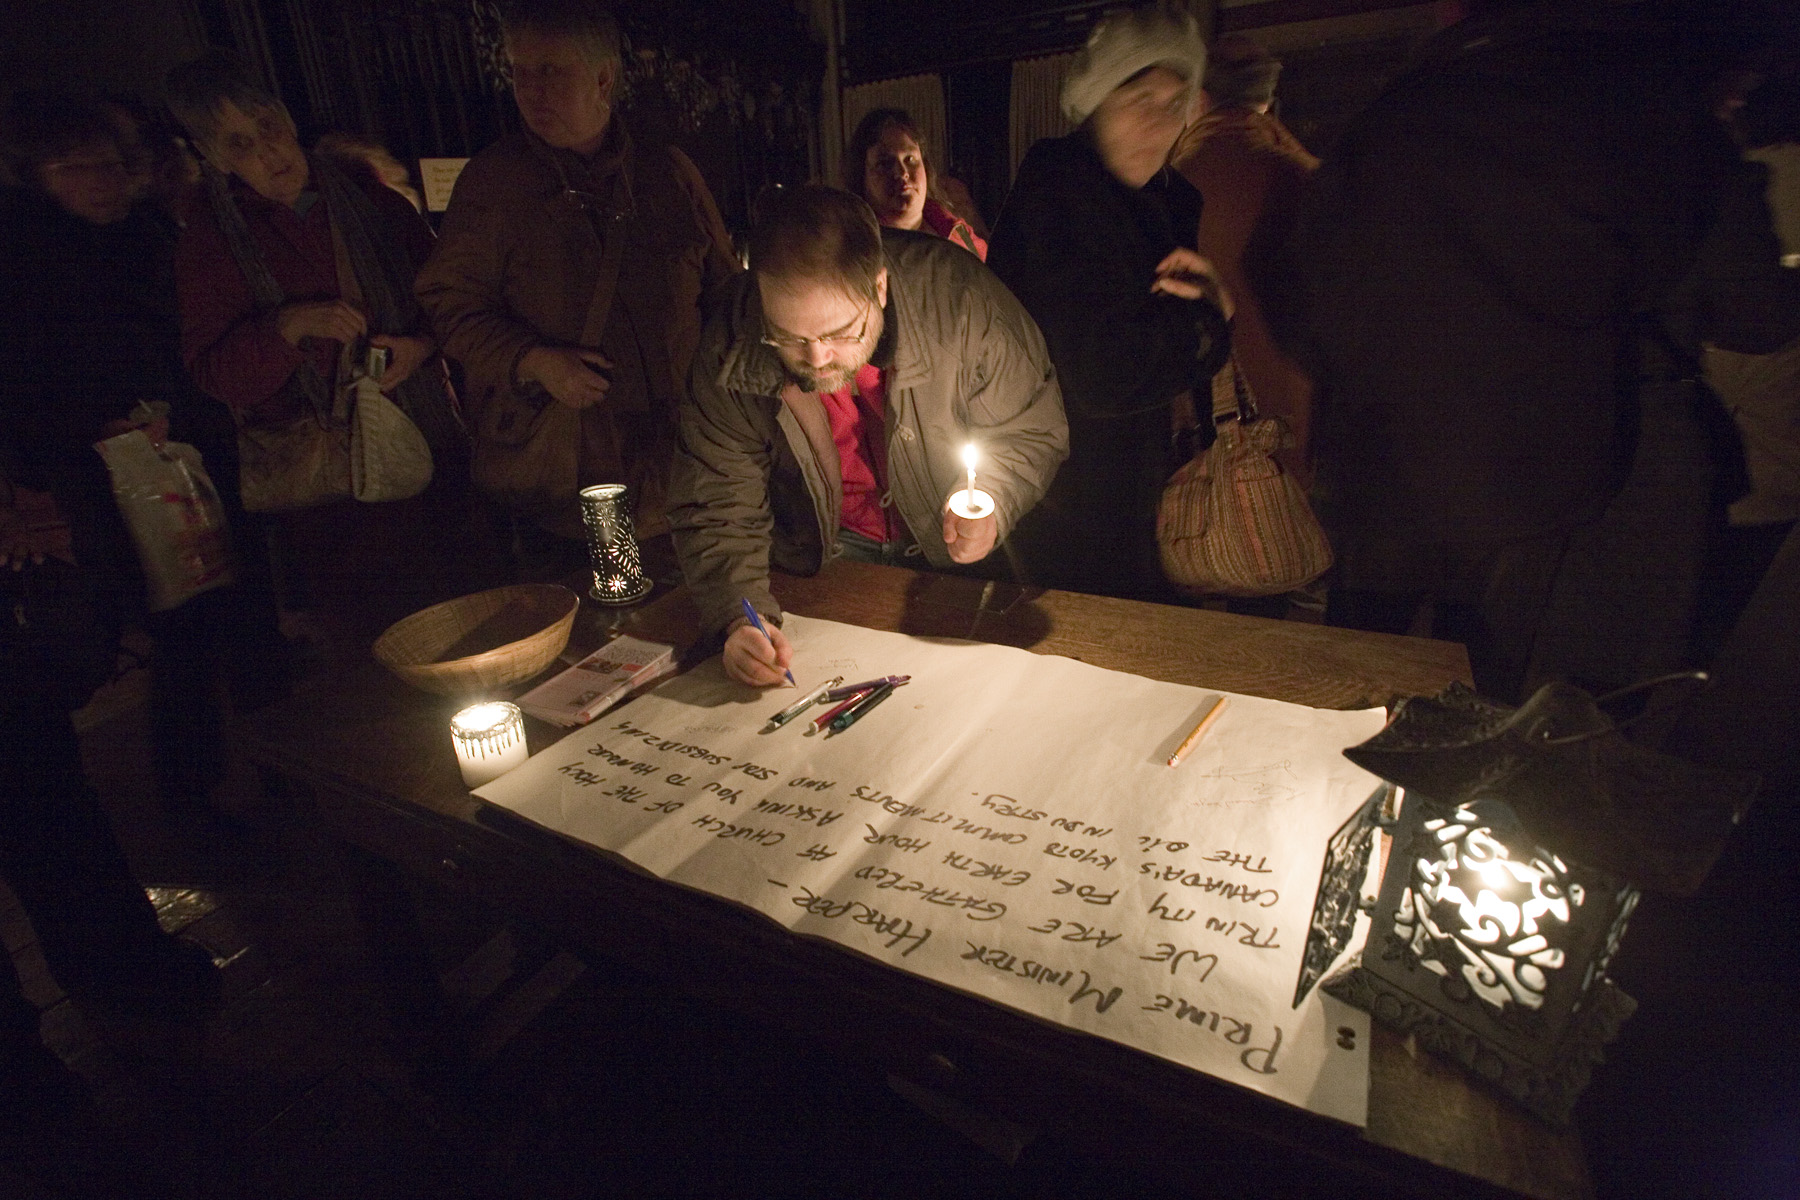 PRIME MINISTER HARPER -
WE ARE GATHERED AT CHURCH OF THE HOLY
TRINITY FOR EARTH HOUR ASKING YOU TO HONOUR
CANADA'S KYOTO COMMITMENTS AND STOP SUBSIDIZING
THE OIL INDUSTRY.